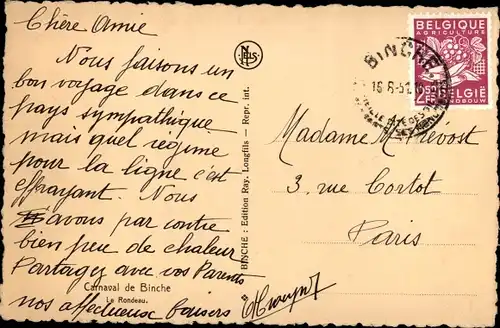 Chère Amie
Nous faisons un
bon voyage dans ce
pays sympathique
mais quel régime
pour la ligne c'est
effrayant. Nous
avons par contre
bien peu de chaleur
Partagez avec vos Parents
nos affectueux baisers
Carnaval de Binche
Le Rondeau.
NELS
BINCHE : Edition Ray. Longfils — Repr. int.
BELGIQUE
AGRICULTURE
BELGIË
LANDBOUW
BINCHE
Madame M. Prevost
3, rue Cortot
Paris